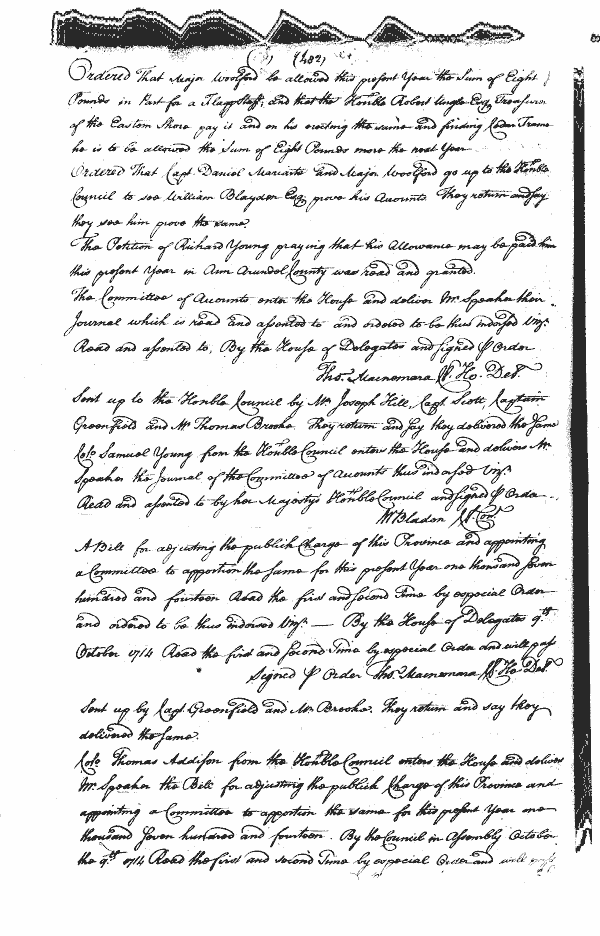 (482)
Ordered That Major Woolford be allowed this present Year the Sum of Eight
Pounds in Part for a Flaggstaff, and that the Honble Robert Ungle Esq Treasurer
of the Eastern Shore pay it and on his erecting the same and finding Cedar Frame
he is to be allowed the Sum of Eight Pounds more the next Year
Ordered That Capt Daniel Mariarte and Major Woolford go up to the Honble
Council to see William Blayden Esq prove his Accounts. They return and say
they see him prove the same.
The Petition of Richard Young praying that his Allowance may be paid him
this present Year in Ann Arundel County was read and granted.
The Committee of Accounts enter the House and deliver Mr Speaker their
Journal which is read and assented to and ordered to be thus indorsed Vizt
Read and assented to, By the House of Delegates and signed P Order
Thos. Macnemara Cl. Ho. Del.
Sent up to the Honble Council by Mr Joseph Hill, Capt Scott, Captain
Greenfield and Mr Thomas Brooke. They return and say they delivered the same
Colo Samuel Young from the Honble Council enters the House and delivers Mr
Speaker the Journal of the Committee of Accounts thus indorsed Vizt
Read and assented to by her Majestys Honble Council and signed P Order
Wm Bladen Cl. Con
A Bill for adjusting the publick Charge of this Province and appointing
a Committee to apportion the same for this present Year one thousand seven
hundred and fourteen Read the first and second Time by especial Order
and ordered to be thus indorsed Vizt. — By the House of Delegates 9th
October 1714 Read the first and second Time by especial Order and will pass
Signed P Order Thos. Macnemara Cl. Ho. Del.
Sent up by Capt. Greenfield and Mr. Brooke. They return and say they
delivered the same.
Colo Thomas Addison from the Honble Council enters the House and delivers
Mr. Speaker the Bill for adjusting the publick Charge of this Province and
appointing a Committee to apportion the same for this present Year one
thousand seven hundred and fourteen. By the Council in Assembly October
the 9th 1714 Read the first and second Time by especial Order and will pass